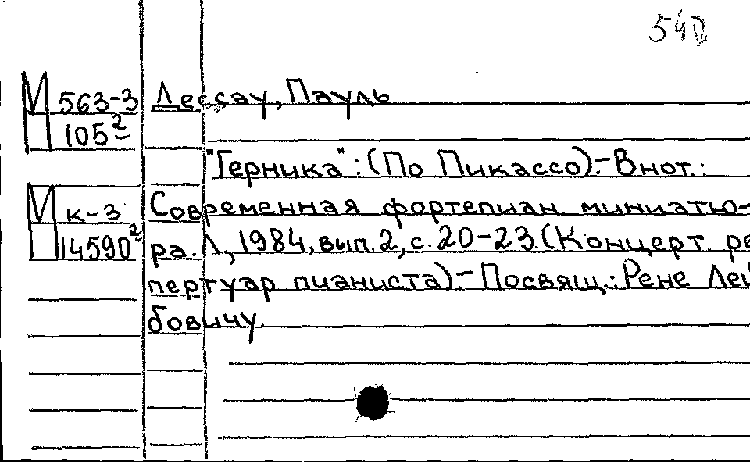 563-3 Дессау, Пауль
105²
"Герника": (По Пикассо).-В нот.:
к-3 Современная фортепиан. миниатю-
14590² ра. Л., 1984, вып. 2, с. 20-23. (Концерт. ре
пертуар пианиста).-Посвящ.: Рене Лей
бовичу.